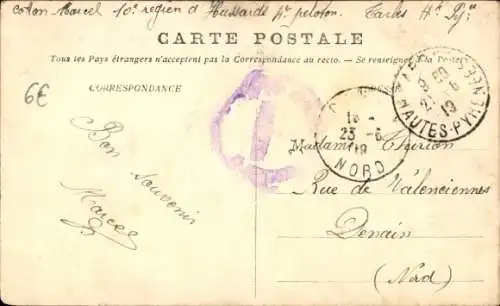 Marcel 10e regien d'Hussards 4e peloton. Tarbes Htes Pyr
CARTE POSTALE
Tous les Pays étrangers n'acceptent pas la Correspondance au recto. — Se renseigner à la Poste
6€
CORRESPONDANCE
Bon
Souvenir
Marcel
HAUTES-PYRÉNÉES
23-6
19
NORD
Madame
Rue de Valenciennes
Denain
(Nord)